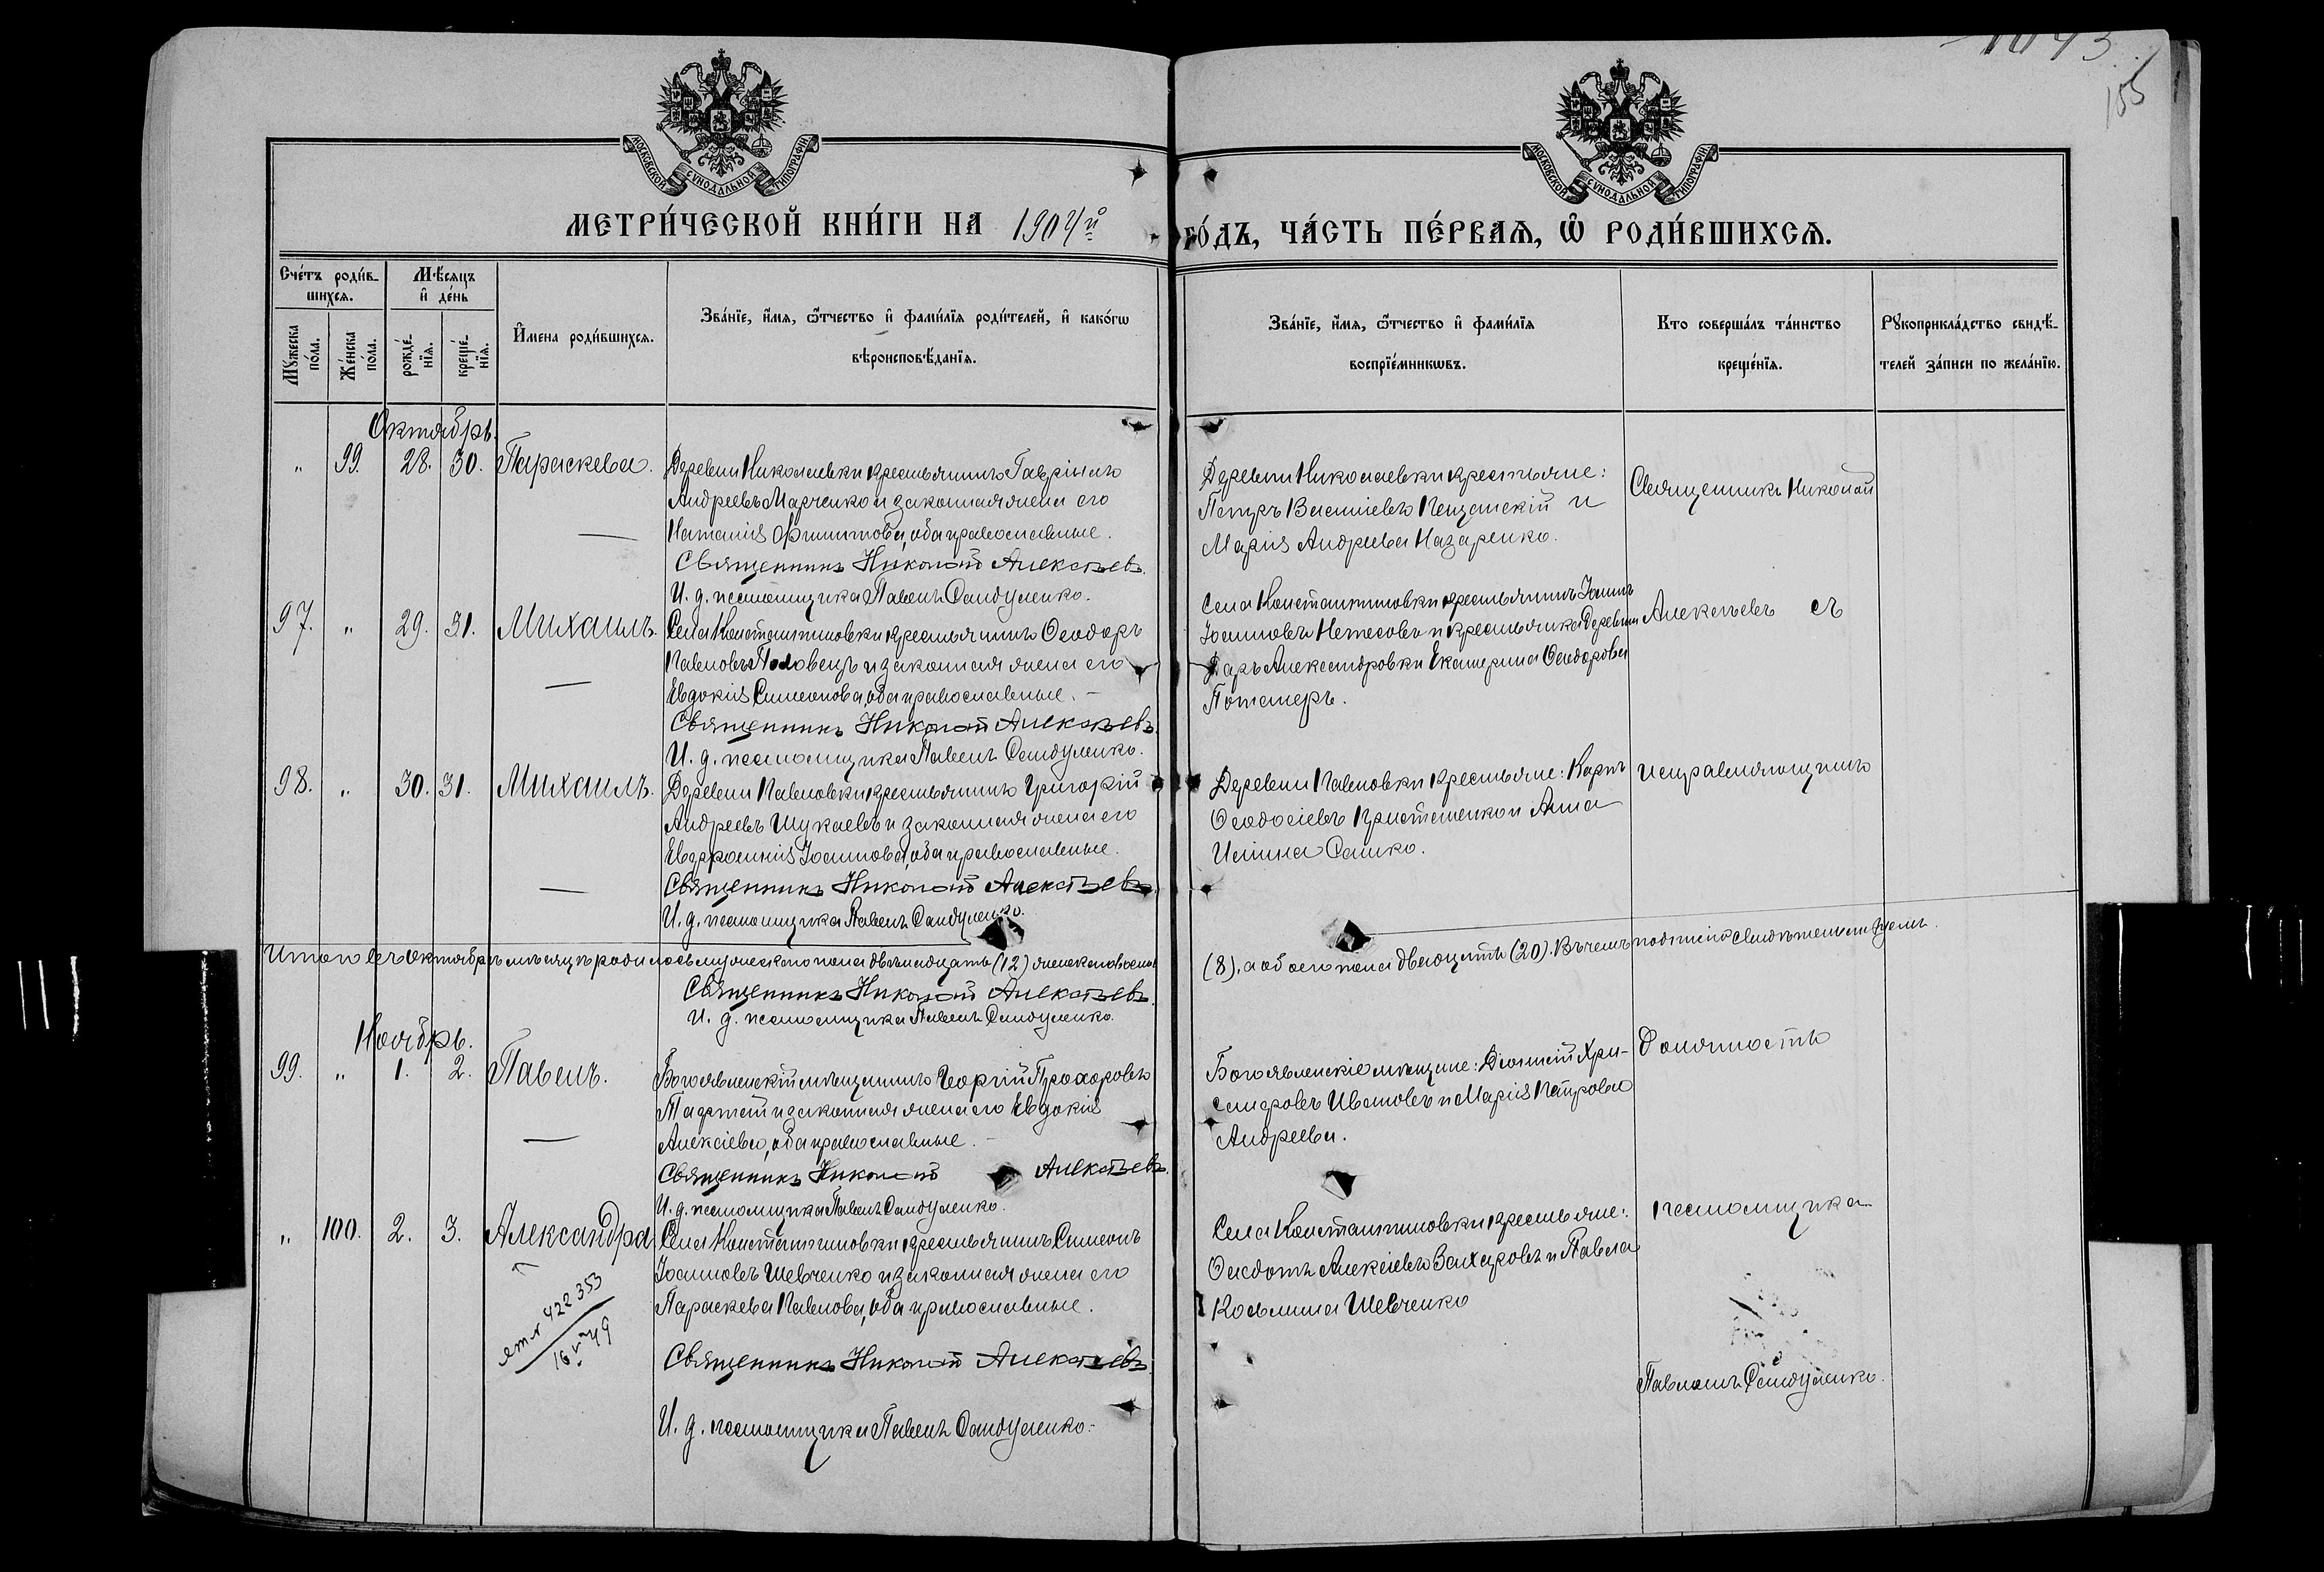 1043
155
МОСКОВСКОЙ СѴНОДАЛЬНОЙ ТИПОГРАФІИ.
МОСКОВСКОЙ СѴНОДАЛЬНОЙ ТИПОГРАФІИ.
МЕТРИ́ЧЕСКОЙ КНИ́ГИ НА 1904й ГО́ДЪ, ЧА́СТЬ ПЕ́РВАѦ, Ѡ҆ РОДИ́ВШИХСѦ.
Сче́тъ роди́в-
шихсѧ.
Мѣ́сѧцъ
и҆ де́нь
Мꙋ́жеска
по́ла.
Же́нска
по́ла.
рожде́-
нїѧ.
креще́-
нїѧ.
И҆мена роди́вшихсѧ.
Зва́нїе, и҆́мѧ, ѻ҆́тчество и҆ фами́лїѧ роди́телей, и҆ како́гѡ
вѣроисповѣ́данїѧ.
Зва́нїе, и҆́мѧ, ѻ҆́тчество и҆ фами́лїѧ
воспрїе́мникѡвъ.
Кто соверша́лъ та́инство
креще́нїѧ.
Рꙋкоприкла́дство свидѣ́-
телей за́писи по жела́нїю.
Октябрь.
" 99. 28. 30. Параскева.
Деревни Николаевки крестьянинъ Гавріилъ
Андреевъ Марченко и законная жена его
Наталія Филиппова, оба православные.
Священникъ Николай Алексѣевъ.
И. д. псаломщика Павелъ Сандуленко.
Деревни Николаевки крестьяне:
Петръ Василіевъ Пещанскій и
Марія Андреева Назаренко.
Священникъ Николай
97. " 29. 31. Михаилъ.
Села Константиновки крестьянинъ Ѳеодоръ
Павловъ Половецъ и законная жена его
Евдокія Симеонова, оба православные.
Священникъ Николай Алексѣевъ.
И. д. псаломщика Павелъ Сандуленко.
Села Константиновки крестьянинъ Іоаннъ
Іоанновъ Нетесовъ и крестьянка деревни
Даръ Александровки Екатерина Ѳеодорова
Потамеръ.
Алексѣевъ съ
98. " 30. 31. Михаилъ.
Деревни Павловки крестьянинъ Григорій
Андреевъ Шукаевъ и законная жена его
Евфросинія Іоаннова, оба православные.
Священникъ Николай Алексѣевъ
И. д. псаломщика Павелъ Сандуленко.
Деревни Павловки крестьяне: Карпъ
Ѳеодосіевъ Христенко и Анна
Ильина Сашко.
исправляющимъ
Итого въ октябрѣ мѣсяцѣ родилось мужескаго пола двѣнадцать (12) женскаго восемь
(8), а обоего пола двадцать (20). Въ чемъ подписью свидѣтельствуемъ.
Священникъ Николай Алексѣевъ.
И. д. псаломщика Павелъ Сандуленко.
Ноябрь.
99. " 1. 2. Павелъ.
Богоявленскій мѣщанинъ Георгій Прохоровъ
и законная жена его Евдокія
Алексіева, оба православные.
Священникъ Николай Алексѣевъ.
И. д. псаломщика Павелъ Сандуленко.
Богоявленскіе мѣщане: Діонисій Хри-
санфовъ Ивановъ и Марія Петрова
Андреева.
должность
" 100. 2. 3. Александра
Села Константиновки крестьянинъ Симеонъ
Іоанновъ Шевченко и законная жена его
Параскева Павлова, оба православные.
Священникъ Николай Алексѣевъ.
И. д. псаломщика Павелъ Сандуленко.
422353
Села Константиновки крестьяне:
Ѳеодотъ Алексіевъ Захаровъ и Павла
Косьмина Шевченко
псаломщика
Павломъ Сандуленко.